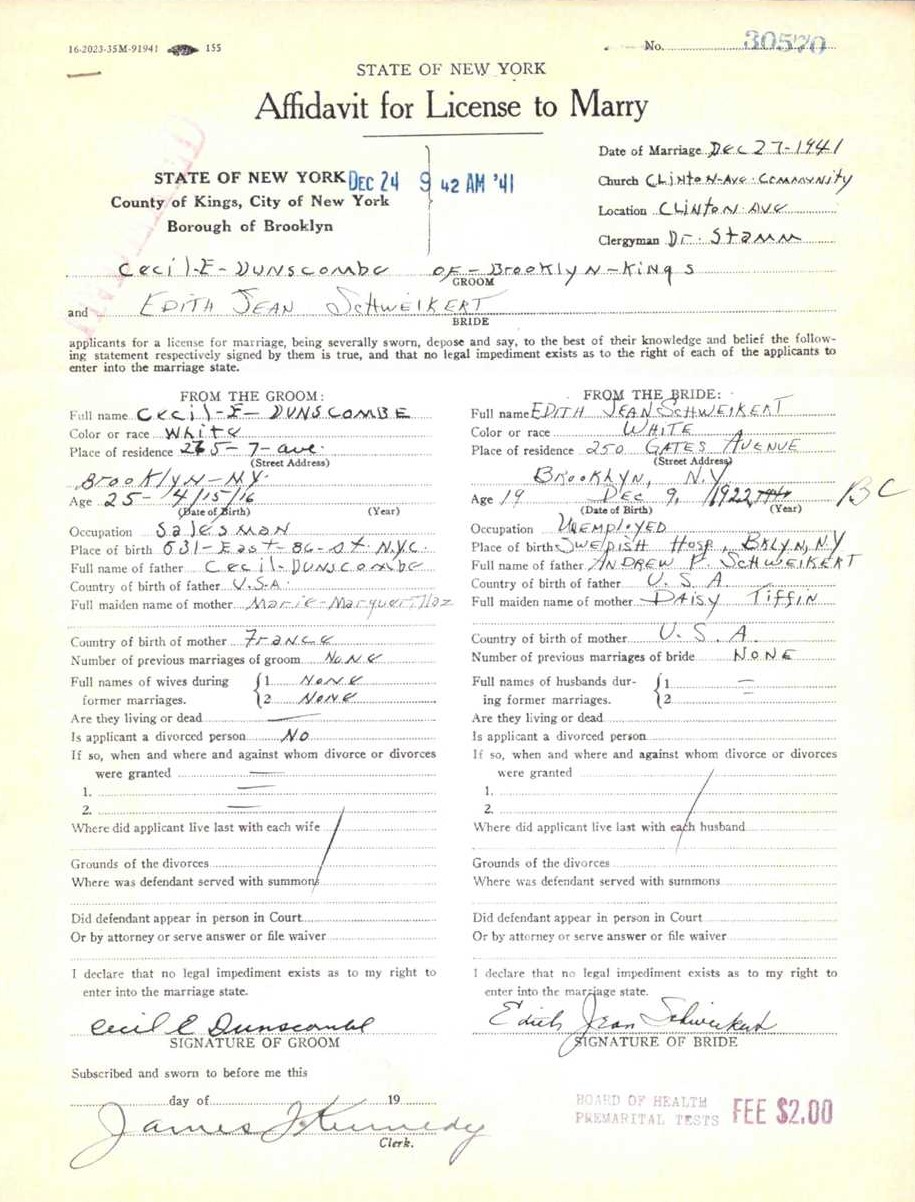 16-2023-35M-91941 155 No. 30570
STATE OF NEW YORK
Affidavit for License to Marry
Date of Marriage Dec 27-1941
STATE OF NEW YORK DEC 24 9 42 AM '41
Church CLinton-Ave-Community
County of Kings, City of New York
Location CLinton Ave
Borough of Brooklyn
Clergyman Dr. Stamm
Cecil-E-Dunscombe of-Brooklyn-Kings
GROOM
and EDITH JEAN SCHWEIKERT
BRIDE
applicants for a license for marriage, being severally sworn, depose and say, to the best of their knowledge and belief the follow-
ing statement respectively signed by them is true, and that no legal impediment exists as to the right of each of the applicants to
enter into the marriage state.
FROM THE GROOM:
Full name Cecil-E-DUNSCOMBE
Color or race White
Place of residence 265-7-ave.
(Street Address)
Brooklyn-NY.
Age 25- 4/15/16
(Date of Birth) (Year)
Occupation Salesman
Place of birth 531-East-86-st. N.Y.C.
Full name of father Cecil-Dunscombe
Country of birth of father U.S.A.
Full maiden name of mother Marie-
Country of birth of mother France
Number of previous marriages of groom None
Full names of wives during { 1 None
former marriages. 2 None
Are they living or dead —
Is applicant a divorced person No
If so, when and where and against whom divorce or divorces
were granted
1.
2.
Where did applicant live last with each wife
Grounds of the divorces
Where was defendant served with summons
Did defendant appear in person in Court
Or by attorney or serve answer or file waiver
I declare that no legal impediment exists as to my right to
enter into the marriage state.
Cecil E Dunscombe
SIGNATURE OF GROOM
FROM THE BRIDE:
Full name EDITH JEAN SCHWEIKERT
Color or race WHITE
Place of residence 250 GATES AVENUE
(Street Address)
BROOKLYN, N.Y
Age 19 DEC 9, 1922 BC
(Date of Birth) (Year)
Occupation UNEMPLOYED
Place of birth SWEDISH HOSP, BKLYN, NY
Full name of father ANDREW P. SCHWEIKERT
Country of birth of father U. S. A
Full maiden name of mother DAISY TIFFIN
Country of birth of mother U. S. A.
Number of previous marriages of bride NONE
Full names of husbands dur- { 1 —
ing former marriages. 2 —
Are they living or dead
Is applicant a divorced person
If so, when and where and against whom divorce or divorces
were granted
1.
2.
Where did applicant live last with each husband
Grounds of the divorces
Where was defendant served with summons
Did defendant appear in person in Court
Or by attorney or serve answer or file waiver
I declare that no legal impediment exists as to my right to
enter into the marriage state.
Edith Jean Schweikert
SIGNATURE OF BRIDE
Subscribed and sworn to before me this
day of 19
James J Kennedy
Clerk.
BOARD OF HEALTH
PREMARITAL TESTS
FEE $2.00